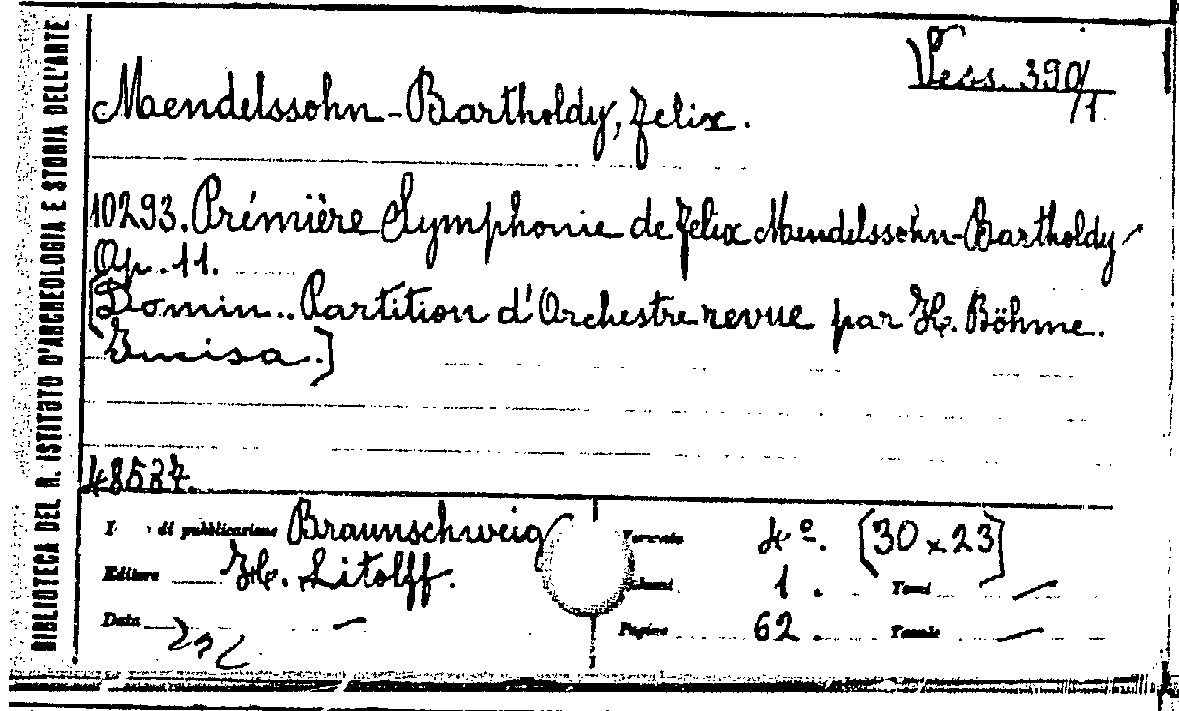 BIBLIOTECA DEL R. ISTITUTO D'ARCHEOLOGIA E STORIA DELL'ARTE
Vess. 390/1
Mendelssohn-Bartholdy, Felix.
10293. Prémière Symphonie de Felix Mendelssohn-Bartholdy
Op. 11.
[Domin.. Partition d'Orchestre revue par H. Böhme.
Incisa.]
48537.
di pubblicazione Braunschweig Formato 4º. [30 x 23]
Editore H. Litolff. Volumi 1. Tomi —
Data — Pagine 62. Tavole —